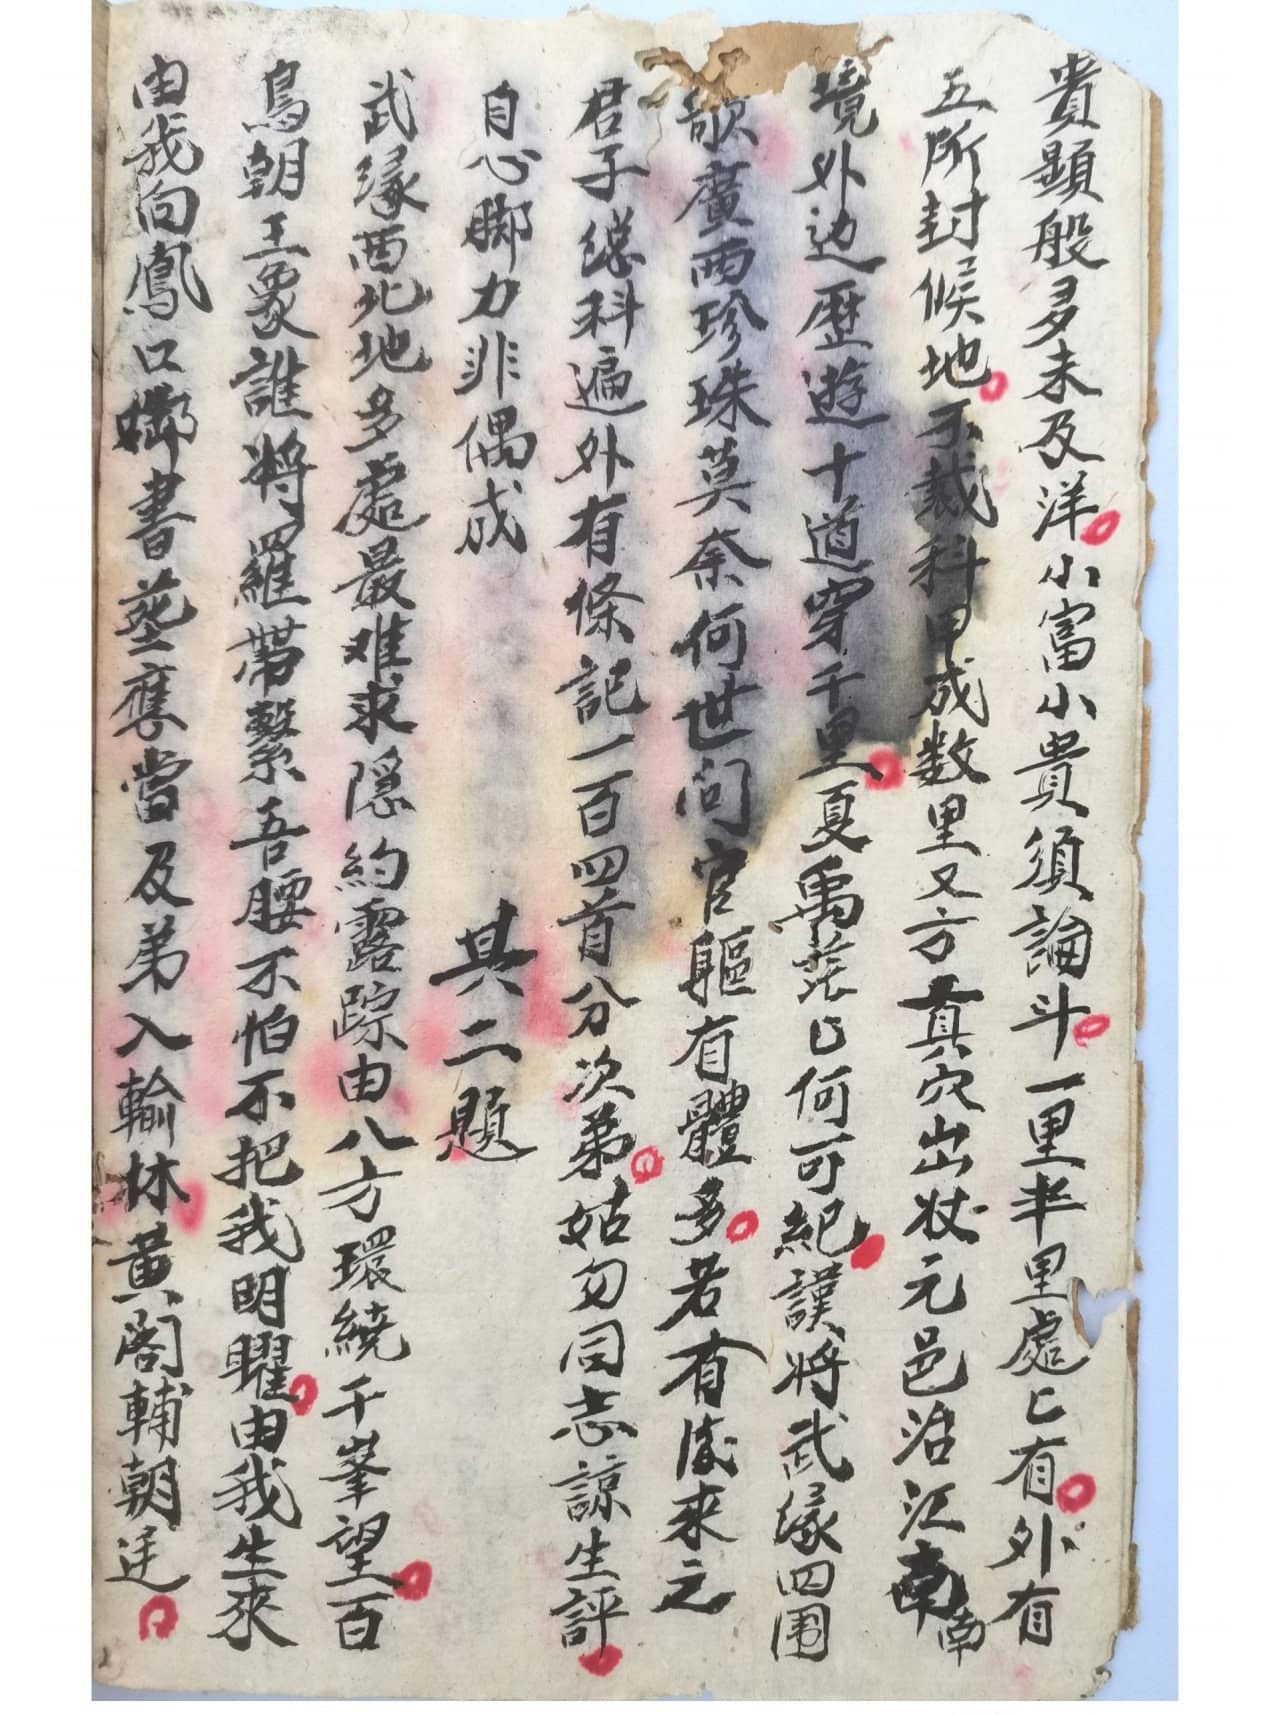 貴顯般多未及洋小富小貴須論斗一里半里處匕有外有
五所封候地不裁科甲成数里又方真穴出状元邑治江南南
境外边歷遊十道穿千里夏禹茫匕何可紀謹將武缘四围
歌廣西珍珠莫奈何世间官軀有體多若有後來之
君子總科遍外有條記一百四首分次弟姑勿同志諒生評
自心脚力非偶成 其二題
武缘西北地多處最难求隐約露踪由八方環繞千峯望百
鳥朝王象誰將羅帶繫吾腰不怕不把我明曜由我生來
由我向鳳口啣書塟廕當及弟入輸林黄阁輔朝廷